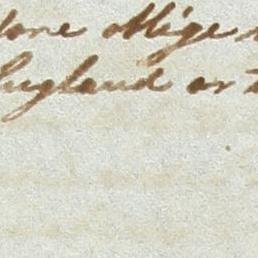 done oblige
England or